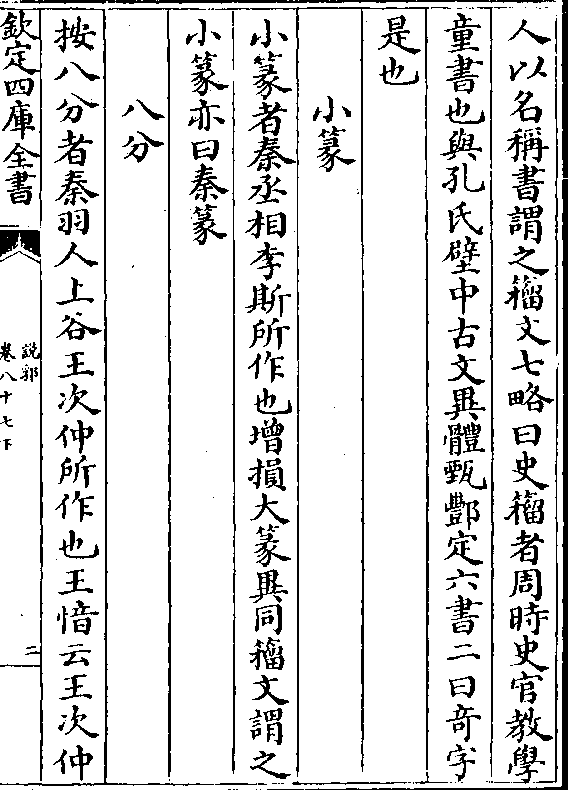 人以名稱書謂之籀文七略曰史籀者周時史官教學
童書也與孔氏壁中古文異體甄酆定六書二曰竒字
是也
小篆
小篆者秦丞相李斯所作也增損大篆異同籀文謂之
小篆亦曰秦篆
八分
按八分者秦羽人上谷王次仲所作也王愔云王次仲
欽定四庫全書
說郛
卷八十七下
二